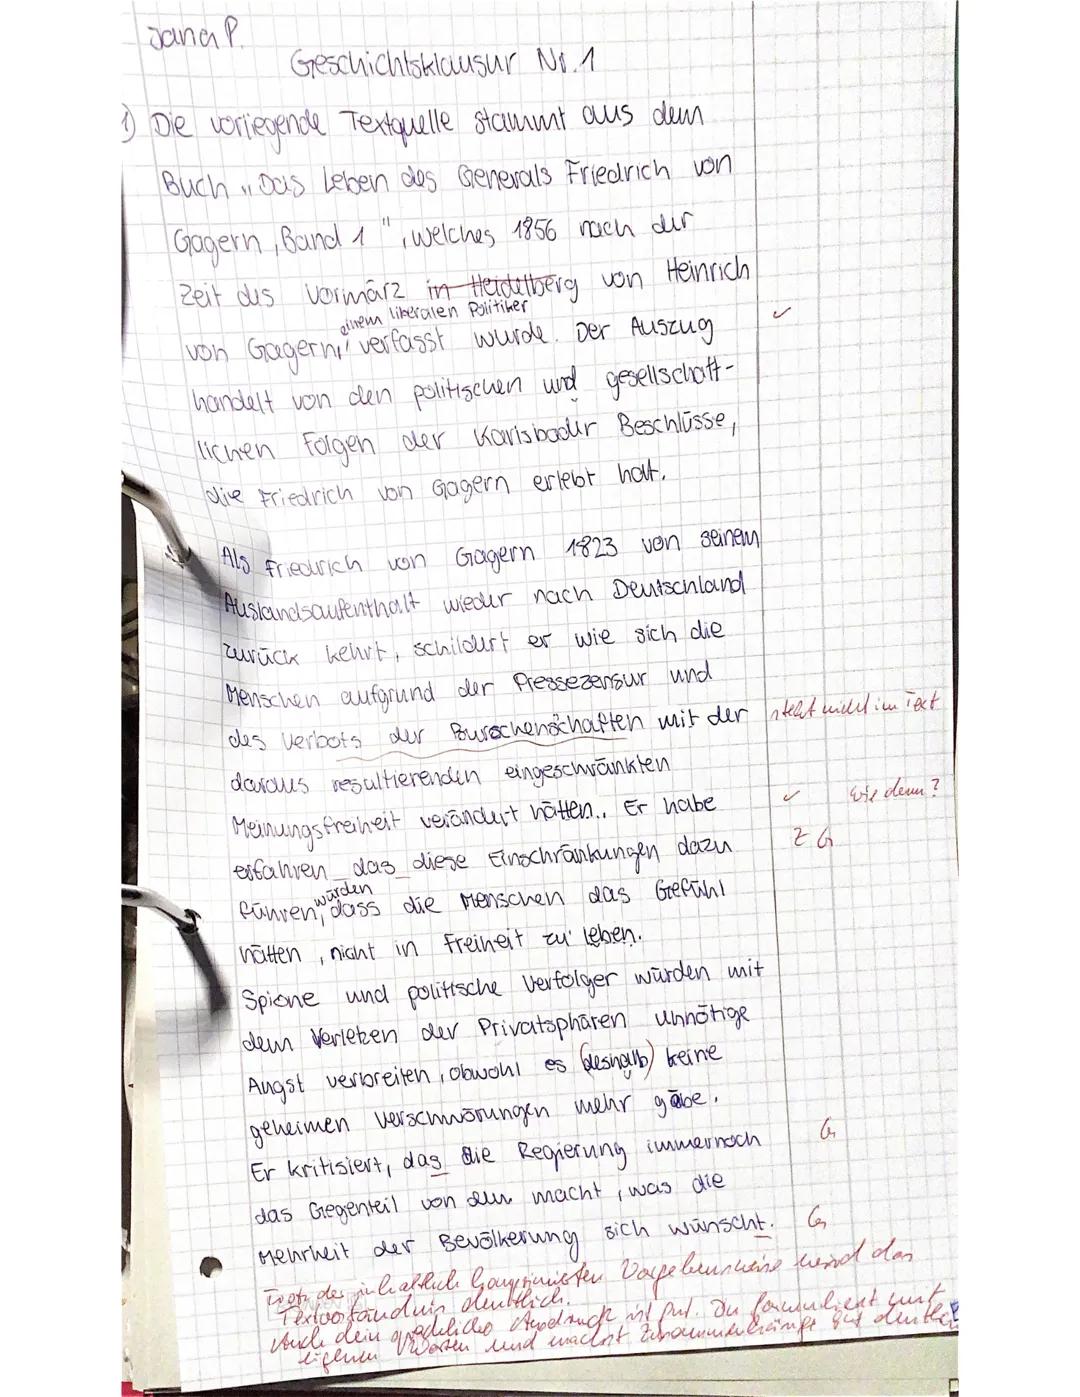 Jana P.
Geschichtsklausur Nr. 1
1) Die vorliegende Textquelle stammt aus dem
Buch „Das Leben des Generals Friedrich von
Gagern, Band 1", welches 1856 nach der
Zeit des Vormärz in Heidelberg von Heinrich
einem liberalen Politiker
von Gagern, verfasst wurde. Der Auszug ✓
handelt von den politischen und gesellschaft-
lichen Folgen der Karlsbader Beschlüsse,
die Friedrich von Gagern erlebt hat.
Als Friedrich von Gagern 1823 von seinem
Auslandsaufenthalt wieder nach Deutschland
zurück kehrt, schildert er wie sich die
Menschen aufgrund der Pressezensur und
des Verbots der Burschenschaften mit der steht nicht im Text
daraus resultierenden eingeschränkten
Meinungsfreiheit verändert hätten.. Er habe ✓ wie denn?
erfahren das diese Einschränkungen dazu Z G
würden
führen, dass die Menschen das Gefühl
hätten, nicht in Freiheit zu leben.
Spione und politische Verfolger würden mit
dem Verletzen der Privatsphären unnötige
Angst verbreiten, obwohl es (deshalb) keine
geheimen Verschwörungen mehr gäbe.
Er kritisiert, das die Regierung immernoch G
das Gegenteil von dem macht, was die
Mehrheit der Bevölkerung sich wünscht. G
Trotz der inhaltlich Vorgehensweise wird das
Textverständnis deutlich.
Auch dein Ausdruck ist gut. Du formulierst mit
eigenen Worten und machst Zusammenhänge gut